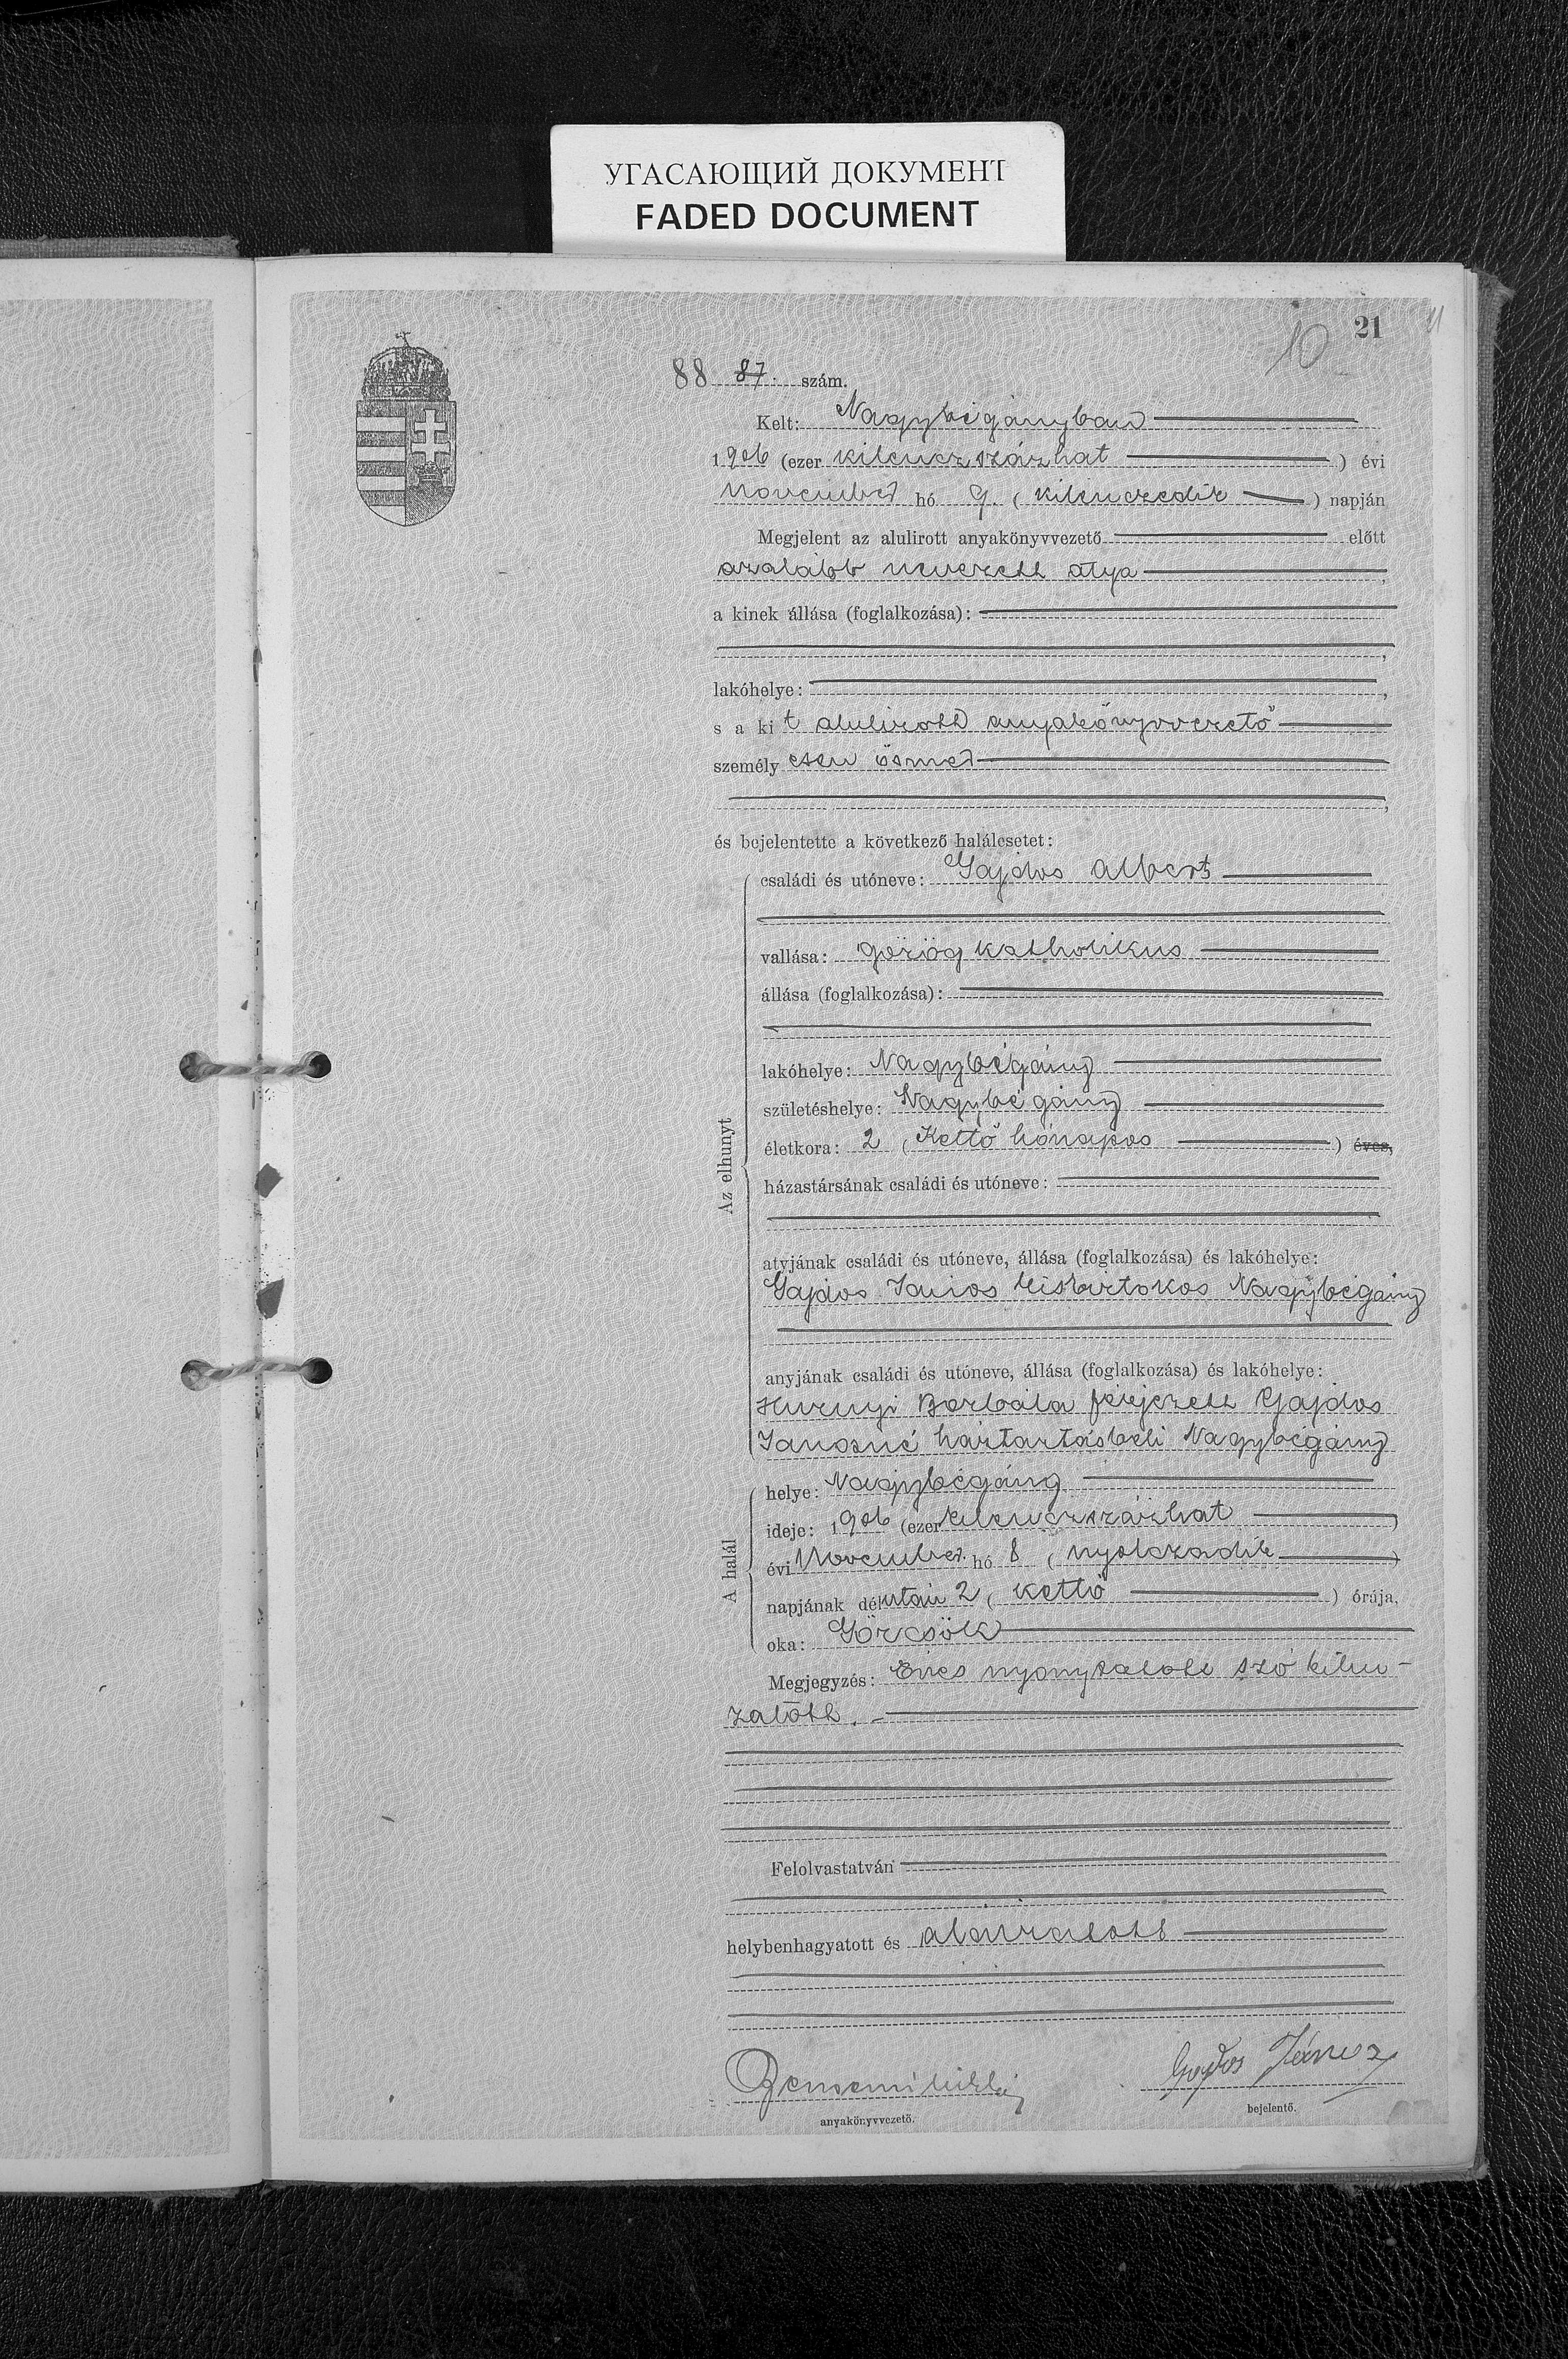 УГАСАЮЩИЙ ДОКУМЕНТ
FADED DOCUMENT
21
10
88 87. szám.
Kelt: Nagybégányban
1906 (ezer kilenczszázhat) évi
November hó 9. (kilenczedik) napján
Megjelent az alulirott anyakönyvvezető előtt
azalább nevezett atya,
a kinek állása (foglalkozása):
lakóhelye:
s a kit alulirott anyakönyvvezető
személyesen ösmer
és bejelentette a következő halálesetet:
Az elhunyt
családi és utóneve: Gajdos Albert
vallása: görög katholikus
állása (foglalkozása):
lakóhelye: Nagybégány
születéshelye: Nagybégány
életkora: 2 (Kettő hónapos) éves,
házastársának családi és utóneve:
atyjának családi és utóneve, állása (foglalkozása) és lakóhelye:
Gajdos János kisbirtokos Nagybégány
anyjának családi és utóneve, állása (foglalkozása) és lakóhelye:
Borbála férjezett Gajdos
Janosné háztartásbeli Nagybégány
A halál
helye: Nagybégány
ideje: 1906 (ezer kilenczszázhat)
évi November hó 8 (nyolczadik)
napjának délután 2 (kettő) órája,
oka: Görcsök
Megjegyzés: Éves nyomtatott szó kihu-
zatott.
Felolvastatván
helybenhagyatott és aláiratott
anyakönyvvezető.
Gajdos János
bejelentő.